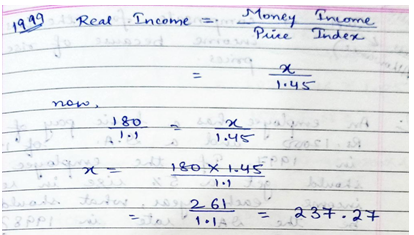 1999 Real Income = Money Income / Price Index
= x / 1.45
now,
180 / 1.1 = x / 1.45
x = 180 × 1.45 / 1.1
= 261 / 1.1 = 237.27